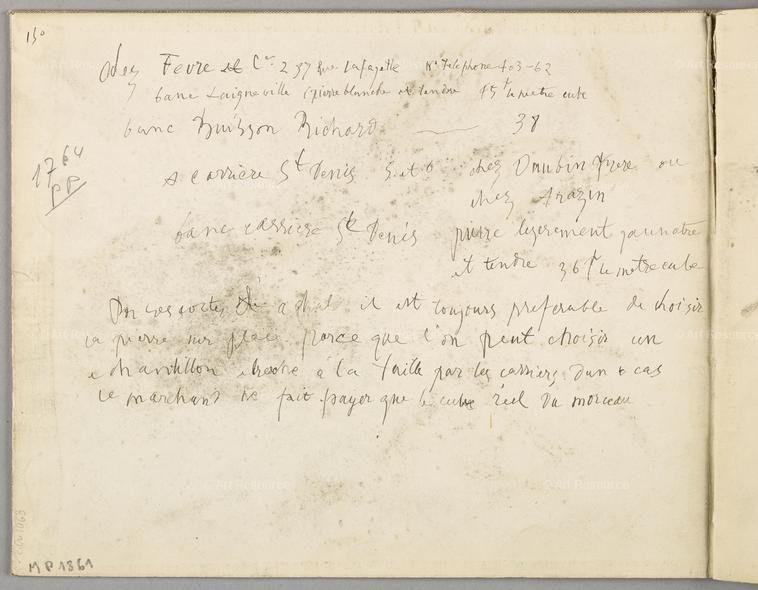 150
chez Fevre et Cie 237 Rue Lafayette No Telephone 403-62
banc Laigneville (pierre blanche et tendre 45f le metre cube
banc Buisson Richard — 38
1764
PP
carriere St Denis S. et O chez Daubin frere ou
chez
banc carriere St Denis pierre legerement jaunatre
et tendre 36f le metre cube
Pour ces sortes d'achat il est toujours preferable de choisir
la pierre sur place parce que l'on peut choisir un
echantillon à la taille par les carriers. Dans ce cas
le marchand ne fait payer que le cube réel du morceau
MP1861
© Art Resource